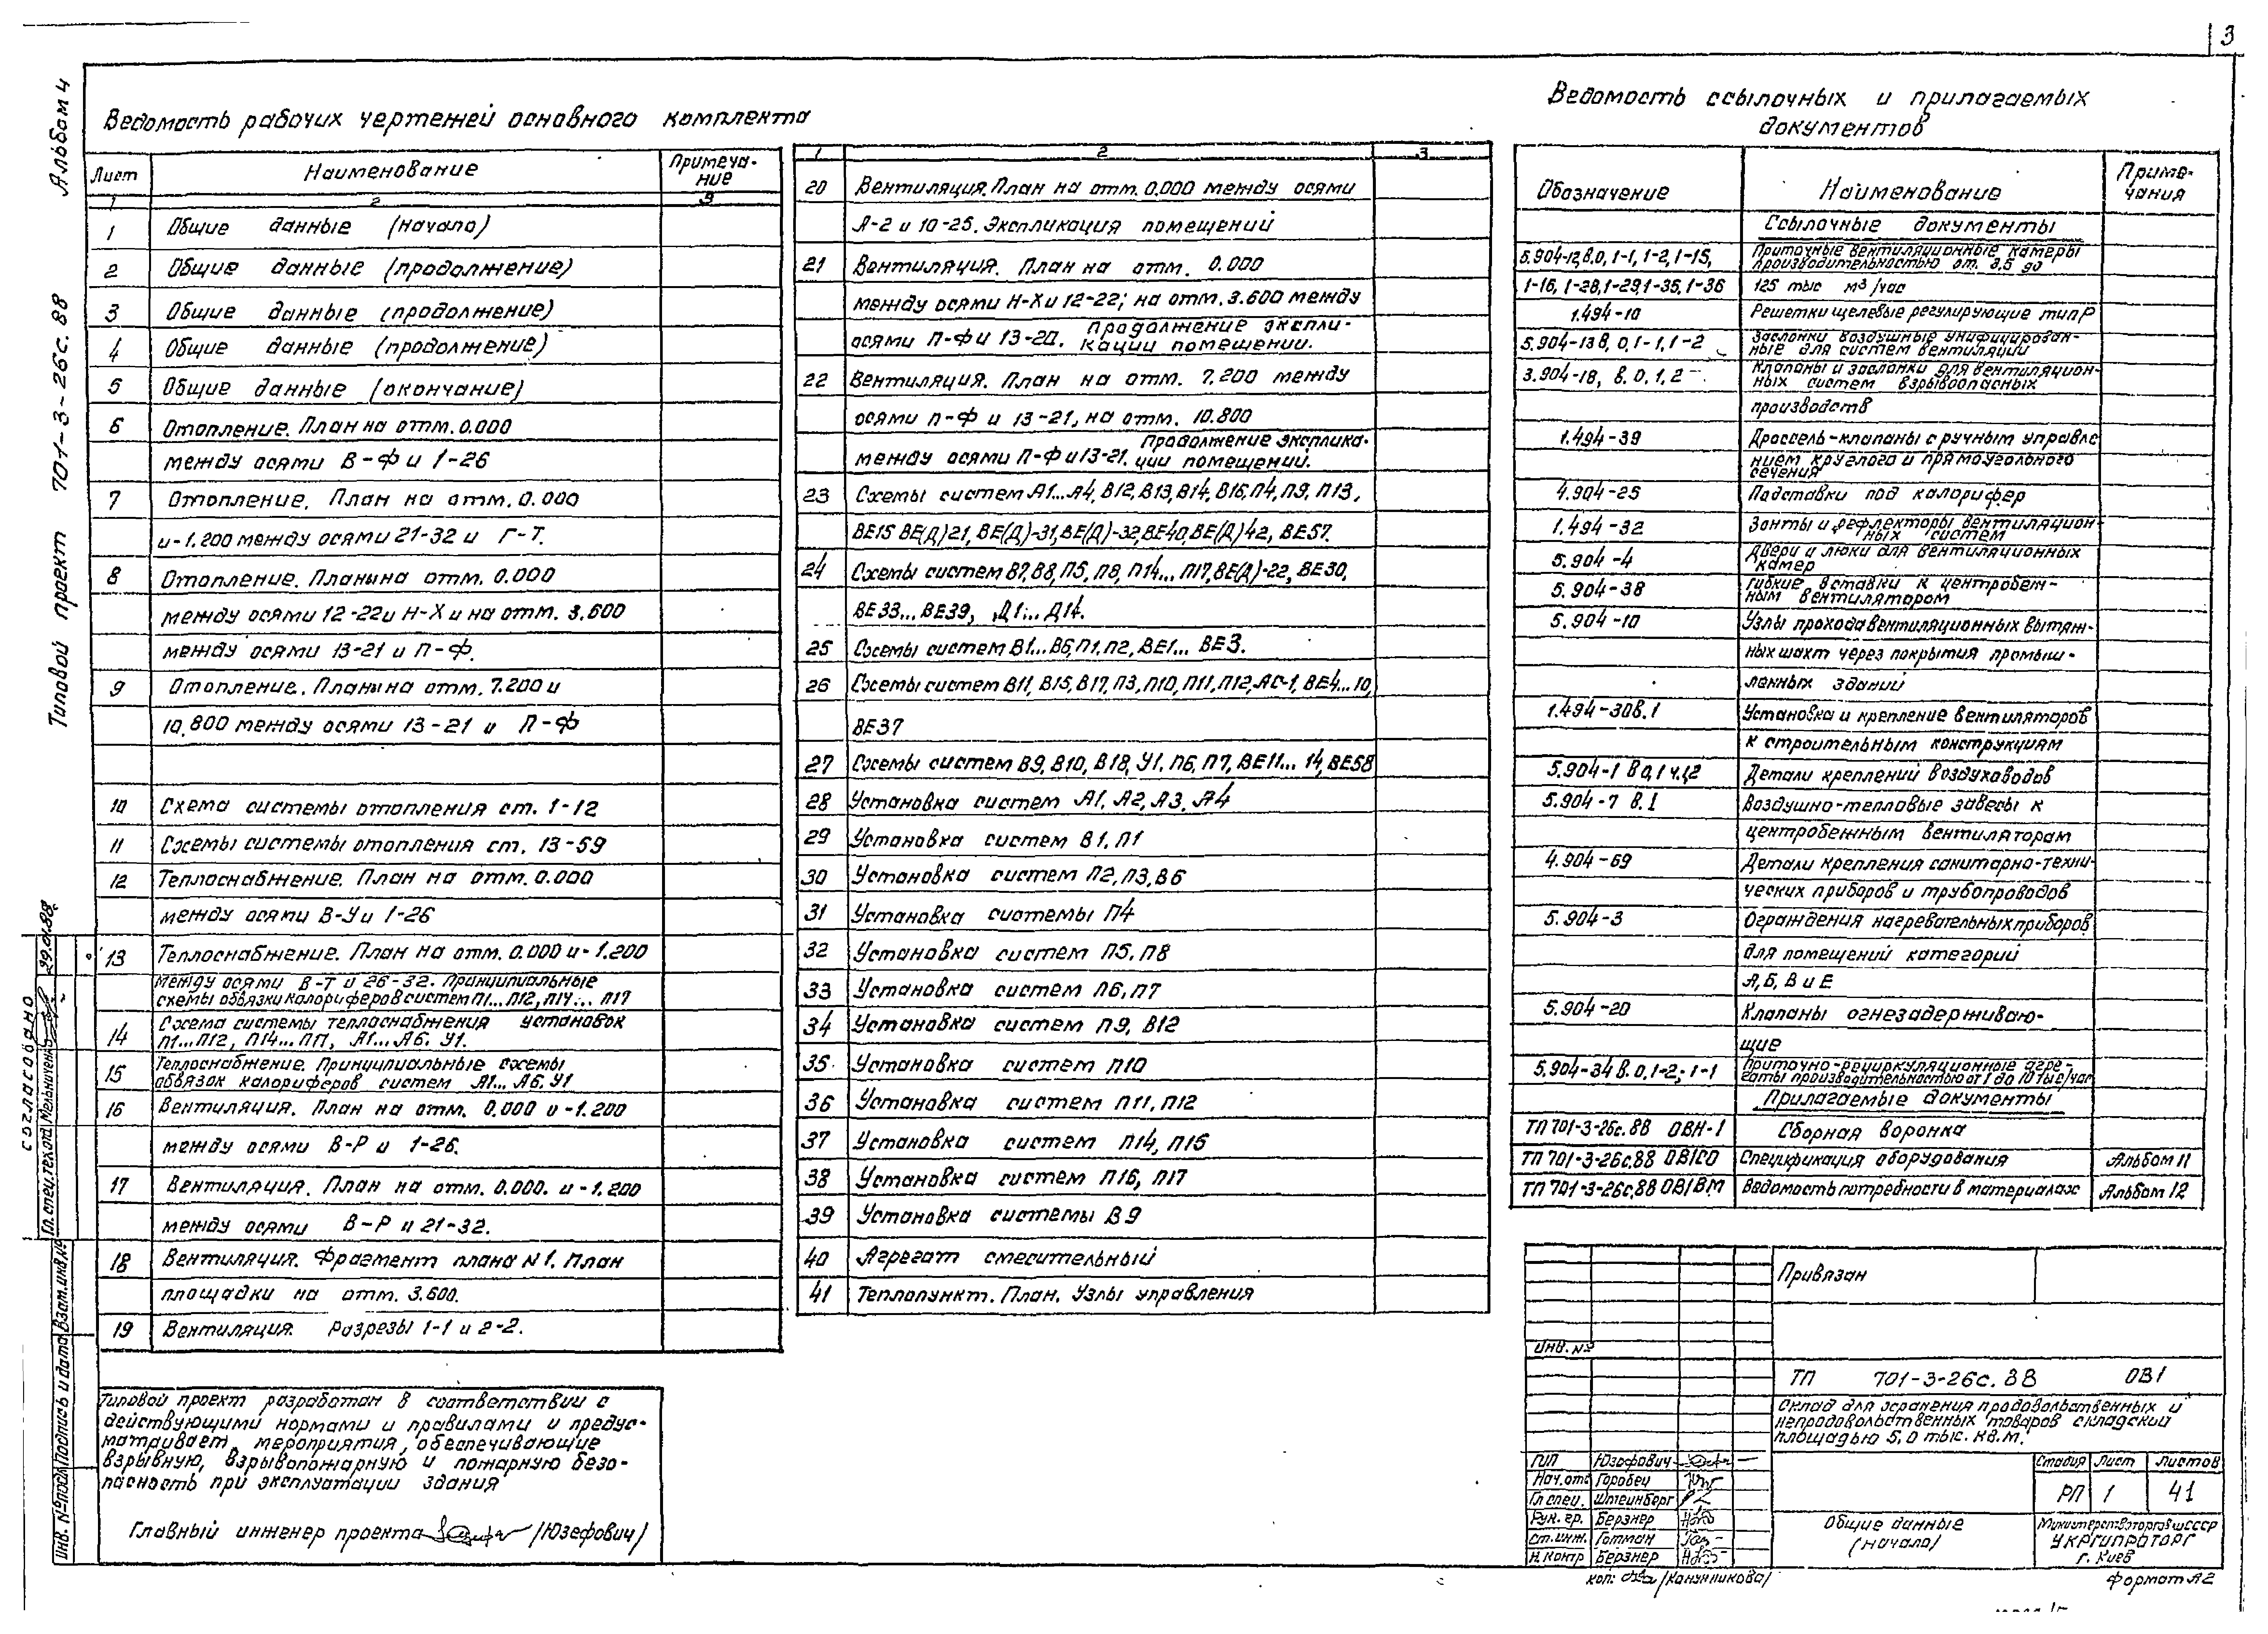 3
Альбом 4
Типовой проект 701-3-26с.88
Ведомость рабочих чертежей основного комплекта
Лист Наименование Примеча-
ние
1 2 3
1 Общие данные (начало)
2 Общие данные (продолжение)
3 Общие данные (продолжение)
4 Общие данные (продолжение)
5 Общие данные (окончание)
6 Отопление. План на отм. 0.000
между осями В-Ф и 1-26
7 Отопление. План на отм. 0.000
и -1.200 между осями 21-32 и Г-Т.
8 Отопление. Планы на отм. 0.000
между осями 12-22 и Н-Х и на отм. 3.600
между осями 13-21 и П-Ф.
9 Отопление. Планы на отм. 7.200 и
10.800 между осями 13-21 и П-Ф
10 Схема системы отопления ст. 1-12
11 Схемы системы отопления ст. 13-59
12 Теплоснабжение. План на отм. 0.000
между осями В-У и 1-26
13 Теплоснабжение. План на отм. 0.000 и -1.200
между осями В-Т и 26-32. Принципиальные
схемы обвязки калориферов систем П1...П12, П14... П17
14 Схема системы теплоснабжения установок
П1...П12, П14...П17, А1...А6. У1.
15 Теплоснабжение. Принципиальные схемы
обвязок калориферов систем А1... А6. У1
16 Вентиляция. План на отм. 0.000 и -1.200
между осями В-Р и 1-26.
17 Вентиляция. План на отм. 0.000. и -1.200
между осями В-Р и 21-32.
18 Вентиляция. Фрагмент плана N1. План
площадки на отм. 3.600.
19 Вентиляция. Разрезы 1-1 и 2-2.
1 2 3
20 Вентиляция. План на отм. 0.000 между осями
Л-2 и 10-25. Экспликация помещений
21 Вентиляция. План на отм. 0.000
между осями Н-Х и 12-22; на отм. 3.600 между
осями П-Ф и 13-20. Продолжение экспли-
кации помещении.
22 Вентиляция. План на отм. 7.200 между
осями П-Ф и 13-21, на отм. 10.800
между осями П-Ф и 13-21. Продолжение эксплика-
ции помещений.
23 Схемы систем А1...А4, В12, В13, В14, В16, П4, П9, П13,
ВЕ15 ВЕ(Д)21, ВЕ(Д)-31, ВЕ(Д)-32, ВЕ40, ВЕ(Д)42, ВЕ57.
24 Схемы систем В7, В8, П5, П8, П14... П17, ВЕ(Д)-22, ВЕ30,
ВЕ33... ВЕ39, Д1... Д14.
25 Схемы систем В1...В6, П1, П2, ВЕ1... ВЕ3.
26 Схемы систем В11, В15, В17, П3, П10, П11, П12, АС-1, ВЕ4...10,
ВЕ37
27 Схемы систем В9, В10, В18, У1, П6, П7, ВЕ11... 14, ВЕ58
28 Установка систем А1, А2, А3, А4
29 Установка систем В1, П1
30 Установка систем П2, П3, В6
31 Установка системы П4
32 Установка систем П5, П8
33 Установка систем П6, П7
34 Установка систем П9, В12
35 Установка систем П10
36 Установка систем П11, П12
37 Установка систем П14, П15
38 Установка систем П16, П17
39 Установка системы В9
40 Агрегат смесительный
41 Теплопункт. План. Узлы управления
Ведомость ссылочных и прилагаемых
документов
Обозначение Наименование Приме-
чания
Ссылочные документы
5.904-12, в.0, 1-1, 1-2, 1-15, Приточные вентиляционные камеры
производительностью от 3.5 до
1-16, 1-28, 1-29, 1-35, 1-36 125 тыс м³/час
1.494-10 Решетки щелевые регулирующие тип Р
5.904-13 в, 0, 1-1, 1-2 Заслонки воздушные унифицирован-
ные для систем вентиляции
3.904-18, в. 0, 1, 2 Клапаны и заслонки для вентиляцион-
ных систем взрывоопасных
производств
1.494-39 Дроссель-клапаны с ручным управле
нием круглого и прямоугольного
сечения
4.904-25 Подставки под калорифер
1.494-32 Зонты и рефлекторы вентиляцион-
ных систем
5.904-4 Двери и люки для вентиляционных
камер
5.904-38 Гибкие вставки к центробеж-
ным вентилятором
5.904-10 Узлы прохода вентиляционных вытяж-
ных шахт через покрытия промыш-
ленных зданий
1.494-30 в.1 Установка и крепление вентиляторов
к строительным конструкциям
5.904-1 в 0,1 ч.1,2 Детали креплений воздуховодов
5.904-7 в.1 Воздушно-тепловые завесы к
центробежным вентиляторам
4.904-69 Детали крепления санитарно-техни-
ческих приборов и трубопроводов
5.904-3 Ограждения нагревательных приборов
для помещений категорий
А, Б, В и Е
5.904-20 Клапаны огнезадерживаю-
щие
5.904-34 в. 0, 1-2; 1-1 Приточно-рециркуляционные агре-
гаты производительностью от 1 до 10 тыс/час
Прилагаемые документы
ТП 701-3-26с.88 ОВН-1 Сборная воронка
ТП 701-3-26с.88 ОВ1СО Спецификация оборудования Альбом 11
ТП 701-3-26с.88 ОВ1ВМ Ведомость потребности в материалах Альбом 12
Типовой проект разработан в соответствии с
действующими нормами и правилами и предус-
матривает мероприятия, обеспечивающие
взрывную, взрывопожарную и пожарную безо-
пасность при эксплуатации здания
Главный инженер проекта /Юзефович/
Согласовано
Гл. спец. тех. отд Мельниченко 29.01.88.
Инв. № подл Подпись и дата Взам. инв. №
Привязан
Инв. №
ТП 701-3-26с.88 ОВ1
Склад для хранения продовольственных и
непродовольственных товаров складской
площадью 5,0 тыс. кв.м.
ГИП Юзефович
Нач. отд Горовец
Гл спец. Штейнберг
Рук. гр. Берзнер
Ст. инж. Готман
Н. контр Берзнер
Стадия Лист Листов
РП 1 41
Общие данные
(начало)
Министерство торговли СССР
УКРГИПРОТОРГ
г. Киев
Коп: /Канунникова/
Формат А2